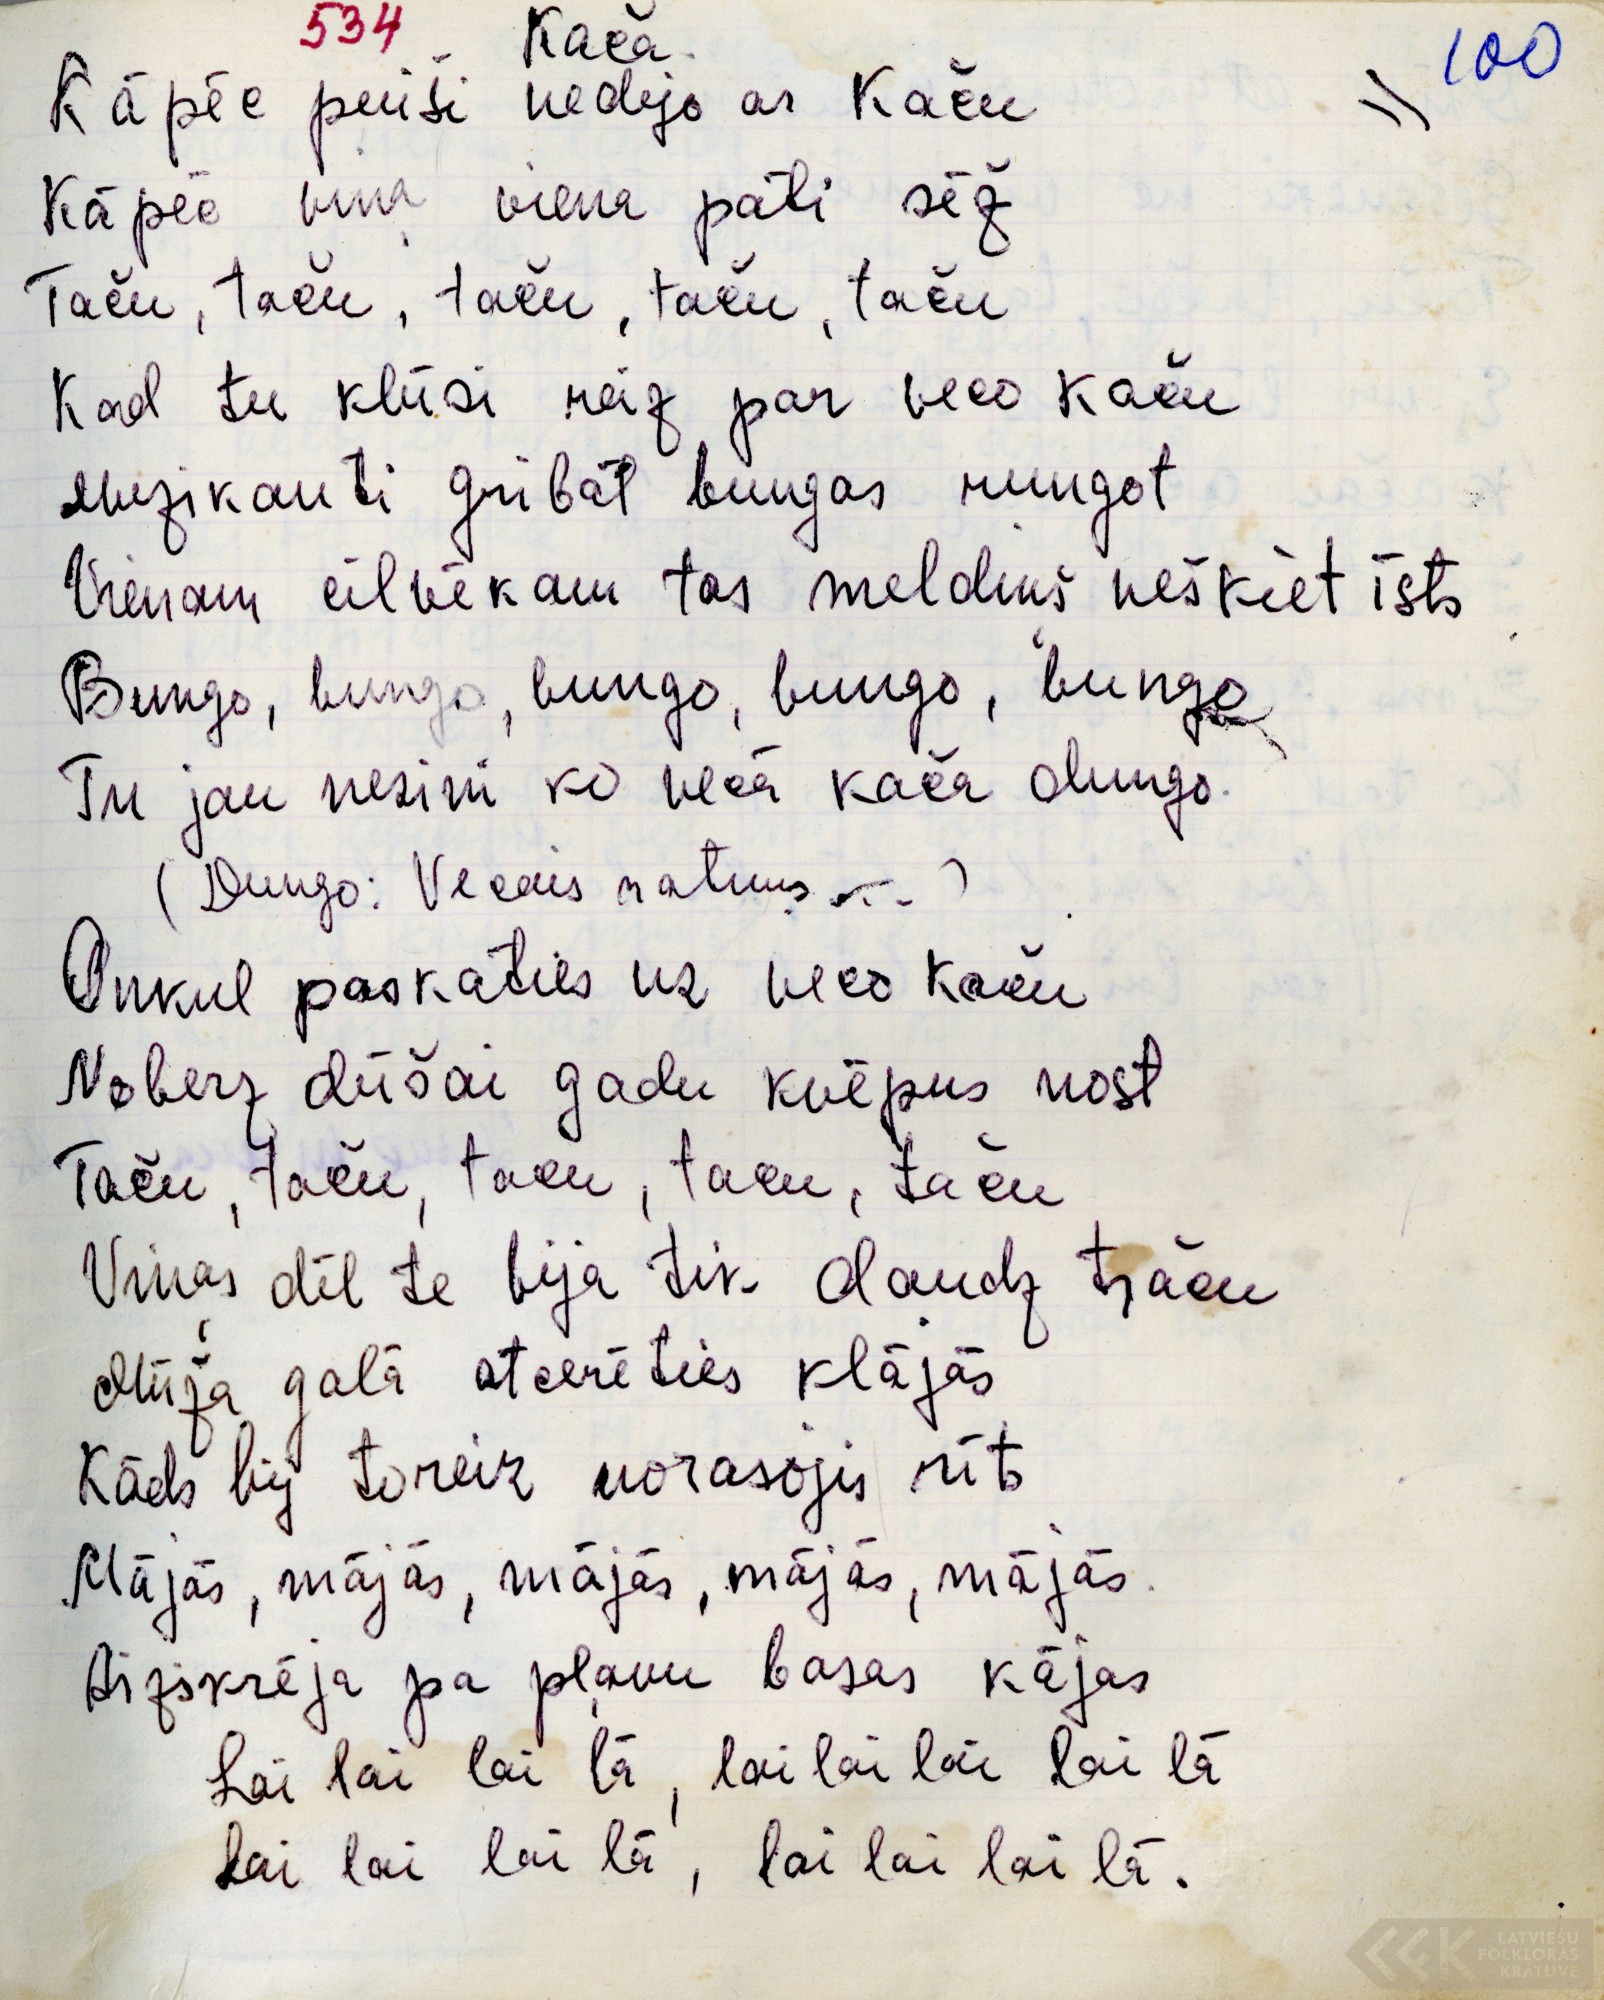 534 Kača. 100
Kāpēc puiši nedejo ar Kaču //
Kāpēc viņa viena pati sēž
Taču, taču, taču, taču, taču
Kad tu klūsi reiz par veco Kaču
Muzikanti gribat bungas rungot
Vienam cilvēkam tas meldiņš nešķiet īsts
Bungo, bungo, bungo, bungo, bungo
Tu jau nezini ko vecā kača dungo.
(Dungo: Vecais ratiņš ... )
Onkul paskaties uz veco Kaču
Noberz dūšai gadu kvēpus nost
Taču, taču, tacu, tacu, taču
Viņas dēl te bija tik daudz traču
Mūža galā atcerēties klājās
Kāds bij toreiz norasojis rīts
Mājās, mājās, mājās, mājās, mājās.
Aizskrēja pa pļavu basas kājas
Lai lai lai lā, lai lai lai lai lā
Lai lai lai lā, lai lai lai lā.
LATVIEŠU
FOLKLORAS
KRĀTUVE